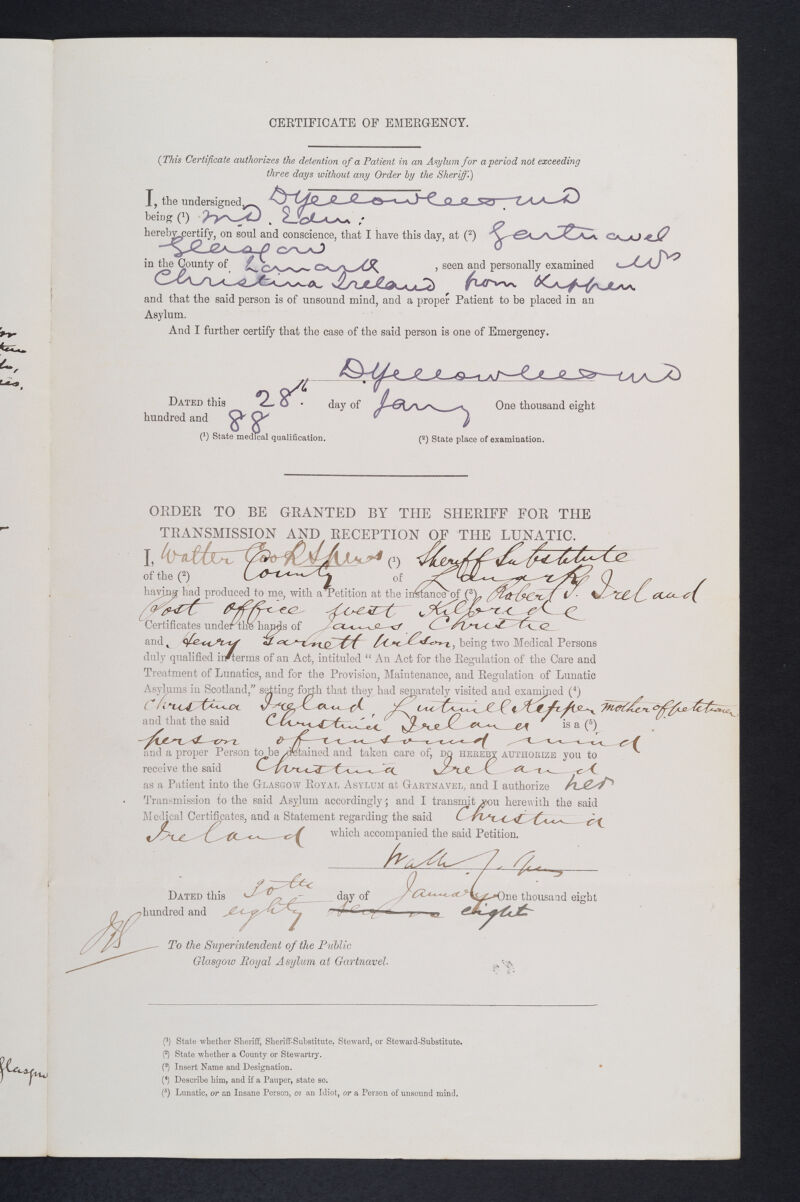 CERTIFICATE OF EMERGENCY.
(This Certificate authorizes the detention of a Patient in an Asylum for a period not exceeding
three days without any Order by the Sheriff.)
I, the undersigned, D Yellowlees. M D
being (¹) M.D. Edin:
hereby certify, on soul and conscience, that I have this day, at (²) Gartnavel
Glasgow
in the County of Lanark, seen and personally examined Mrs
Christina Ireland, from Kippen
and that the said person is of unsound mind, and a proper Patient to be placed in an
Asylum.
And I further certify that the case of the said person is one of Emergency.
D Yellowlees M D
DATED this 28th. day of Jany One thousand eight
hundred and 88
(¹) State medical qualification. (²) State place of examination.
ORDER TO BE GRANTED BY THE SHERIFF FOR THE
TRANSMISSION AND RECEPTION OF THE LUNATIC.
I, Walter Cook Spens (¹) Sheriff Substitute
of the (²) County of Lanark
having had produced to me, with a Petition at the instance of (³) Robert J. Ireland
Post office West Kilbride
Certificates under the hands of James Christie
and Henry Garnett Wilson, being two Medical Persons
duly qualified in terms of an Act, intituled “ An Act for the Regulation of the Care and
Treatment of Lunatics, and for the Provision, Maintenance, and Regulation of Lunatic
Asylums in Scotland,” setting forth that they had separately visited and examined (⁴)
Christina Ireland, Lintmill Kippen mother of petitioner
and that the said Christina Ireland is a (⁵)
person of unsound mind
and a proper Person to be detained and taken care of, DO HEREBY AUTHORIZE you to
receive the said Christina Ireland
as a Patient into the GLASGOW ROYAL ASYLUM at GARTNAVEL, and I authorize her
Transmission to the said Asylum accordingly; and I transmit you herewith the said
Medical Certificates, and a Statement regarding the said Christina
Ireland which accompanied the said Petition.
DATED this 30th day of January One thousand eight
hundred and eighty eight
To the Superintendent of the Public
Glasgow Royal Asylum at Gartnavel.
(¹) State whether Sheriff, Sheriff-Substitute, Steward, or Steward-Substitute.
(²) State whether a County or Stewartry.
(³) Insert Name and Designation.
(⁴) Describe him, and if a Pauper, state so.
(⁵) Lunatic, or an Insane Person, or an Idiot, or a Person of unsound mind.
Glasgow